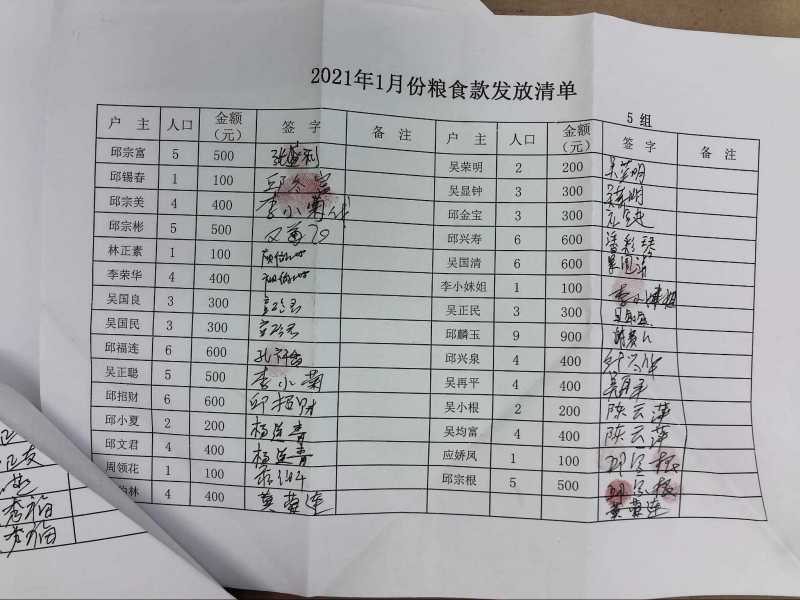 2021年1月份粮食款发放清单
5组
户 主 人口 金额（元） 签 字 备 注 户 主 人口 金额（元） 签 字 备 注
邱宗富 5 500 吴荣明 2 200 吴荣明
邱锡春 1 100 吴显钟 3 300
邱宗美 4 400 李小菊代 邱金宝 3 300
邱宗彬 5 500 邱兴寿 6 600 潘彩琴
林正素 1 100 吴国清 6 600 吴国清
李荣华 4 400 李小妹姐 1 100 李小妹姐
吴国良 3 300 吴正民 3 300
吴国民 3 300 邱麟玉 9 900
邱福连 6 600 邱兴泉 4 400
吴正聪 5 500 李小菊 吴再平 4 400 吴再平
邱招财 6 600 邱招财 吴小根 2 200 陈云萍
邱小夏 2 200 杨连青 吴均富 4 400 陈云萍
邱文君 4 400 杨连青 应娇凤 1 100 邱宗根
周领花 1 100 邱宗根 5 500 邱宗根
林 4 400 黄蓉莲 黄蓉莲
秀福
秀福